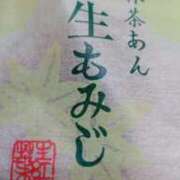 茶あん
生もみじ